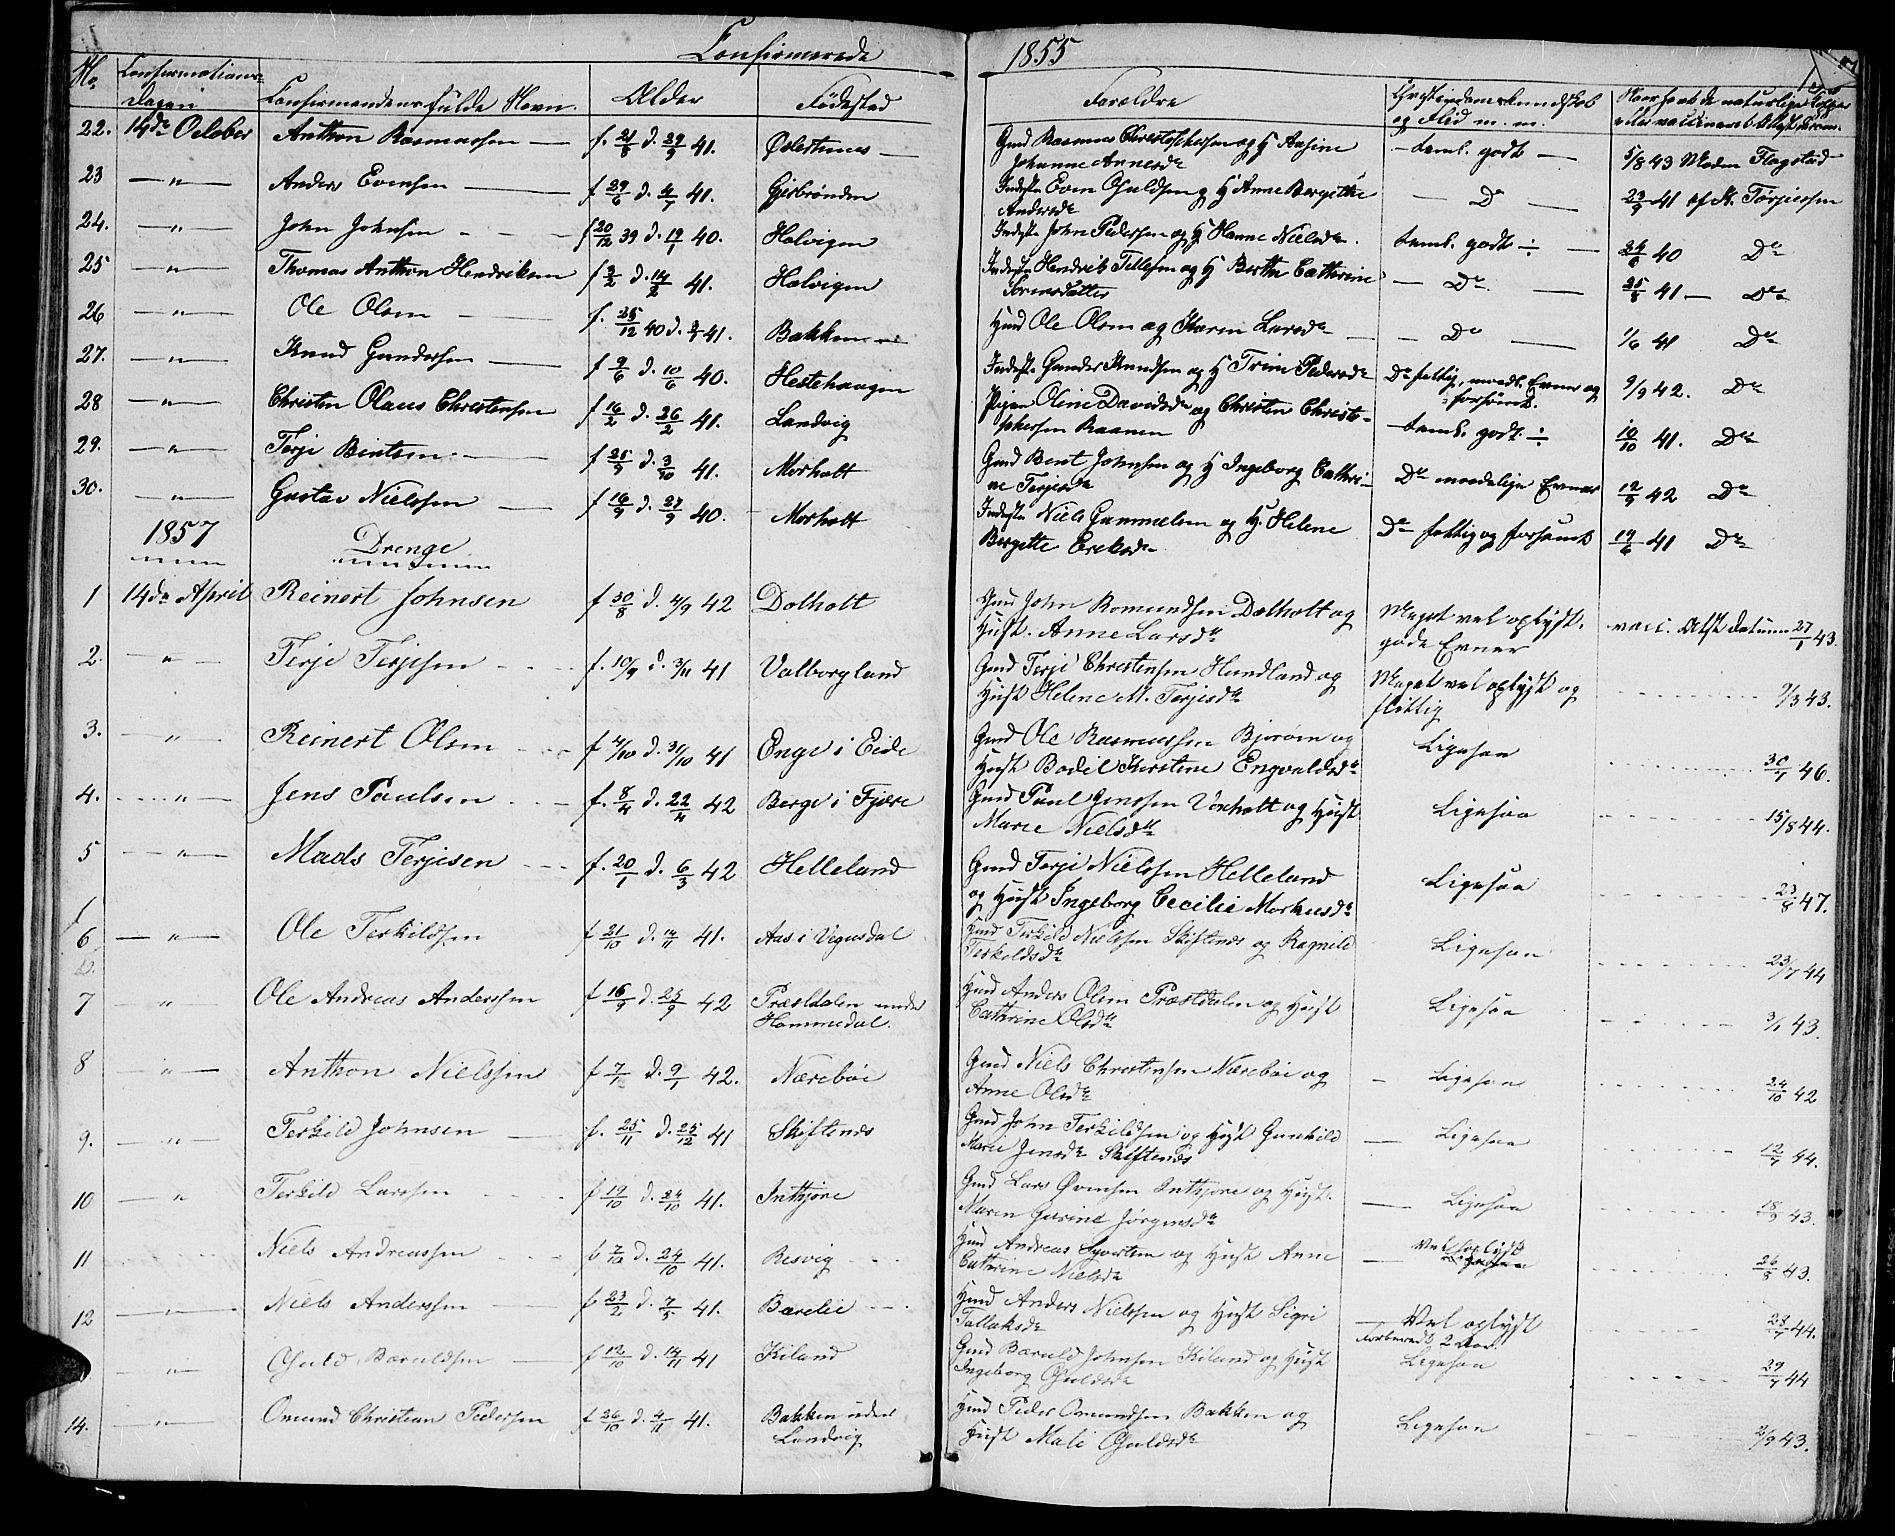 Confirmerede 1855
No Confirmations Dagen Confirmandens fulde Navn. Alder Fødestad Forældre Christendomskundskab og Flid m. m.
22. 14de October Anthon Rasmussen f. 21/8 d. 29/9 41. Østertunes Gmd Rasmus Christophersen og H Aasine Johanne Annesdr teml. godt 5/8 43 Flagstad
23 " Anders Evensen f 29/6 d. 4/7 41. Gjesbrønden Inderste Even Osuldsen og H Anne Bergithe Andersdr Do 23/9 41 af N. Terjessen
24. " John Johnsen f 20/12 39 d. 19/1 40. Holvigen Inderste John Pedersen og H Hanne Nielsdr. teml. godt ÷ 24/8 40 Do
25 " Thomas Anthon Hendriksen f 3/2 d. 14/2 41. Holvigen Inderste Hendrik Tellefsen og H Berthe Cathrine Sørensdatter Do 25/8 41 Do
26 " Ole Olsen f. 25/12 40 d. 2/1 41. Bakken Hmd Ole Olsen og Karen Larsdr Do 1/6 41 Do
27. " Knud Gundersen f 9/6 d. 10/6 40. Hestehaugen Inderste Gunder Knudsen og H Trine Pedersdr Do fattig, maadl. Evner og forsømt. 9/9 42. Do
28 " Christen Olaus Christensen f 16/2 d. 26/2 41. Landvig Pigen Oline Davidsdr og Christen Christophersen Raanen temlg. godt. ÷ 10/10 41. Do
29. " Terje Bentsen f 25/9 d. 3/10 41. Morholt Gmd Bent Johnsen og H Ingeborg Cathrine Terjesdr Do maadelige Evner 12/9 42 Do
30. " Gustav Nielssen f 16/9 d. 27/9 40. Morholt Inderste Niels Gammelsen og H. Helene Bergitte Ereksdr Do fattig og forsømt 19/6 41 Do
1857 Drenge
1 14de April Reinert Johnsen f 30/8 d. 4/9 42 Dolholt Gmd John Romundsen Dolholt og Hust. Anne Larsdr Meget vel oplyst. gode Evner vacc. Attst datum 27/1 43.
2. " Terje Terjesen f. 10/9 d. 3/11 41 Valborgland Gmd Terje Christensen Hundland og Hust Helene M. Terjesdr Meget vel oplyst og flittig 9/3 43.
3. " Reinert Olsen f 4/10 d. 31/10 41 Enge i Eide Gmd Ole Rasmussen Bjoroen og Hust Bodil Kirstine Engvaldsdr Ligesaa 30/7 46.
4. " Jens Paulsen f. 8/4 d. 22/4 42 Berge i Fjære Gmd Paul Jenssen Voxholt og Hust Marie Nielsdr Ligesaa 15/8 44.
5 " Mads Terjesen f. 20/1 d. 6/3 42 Helleland Gmd Terje Nielssen Helleland og Hust Ingeborg Cecilie Markusdr Ligesaa 23/8 47.
6 " Ole Terkildsen f 21/10 d. 14/11 41. Aas i Vegusdal Gmd Terkild Nielssen Skiftenes og Ragnild Terkeldsdr Ligesaa 23/7 44
7 " Ole Andreas Anderssen f 16/9 d. 25/9 42 Præstdalen under Hommedal. Hmd Anders Olsen Præstdalen og Hust Cathrine Olsdr Ligesaa 3/1 43.
8 " Anthon Nielssen f 7/1 d. 9/1 42. Nærebøe Gmd Niels Christensen Nærebøe og Anne Olsdr Ligesaa 24/10 42
9. " Terkild Johnsen f. 25/11 d. 25/12 41 Skiftenes Gmd John Terkildsen og Hust Gunhild Marie Jensdr Skiftenes Ligesaa 12/7 44.
10 " Terkild Larssen f 19/10 d. 24/10 41. Inthjore Gmd Lars Ovensen Inthjore og Hust. Maren Gurine Jørgensdr Ligesaa 18/9 43.
11 Niels Andreassen f. 7/10 d. 24/10 41. Resvig Hmd Andreas Syvertsen og Hust Anne Cathrine Nielsdr Vel oplyst 26/8 43.
12 " Niels Anderssen f 23/2 d. 7/5 41. Barelie Hmd Anders Nielssen og Hust Sigri Tallaksdr Vel oplyst Forberedt 2 Aar. 28/7 44.
" Osuld Baruldsen f 12/10 d. 14/11 41 Kiland Gmd Baruld Johnsen Kiland og Hust Ingeborg Osuldsdr Ligesaa 29/7 44
14. " Omund Christian Pedersen f 26/10 d. 4/11 41. Bakken under Landvig Hmd Peder Omundsen Bakken og Hust Mali Osuldsdr Ligesaa 2/9 43.